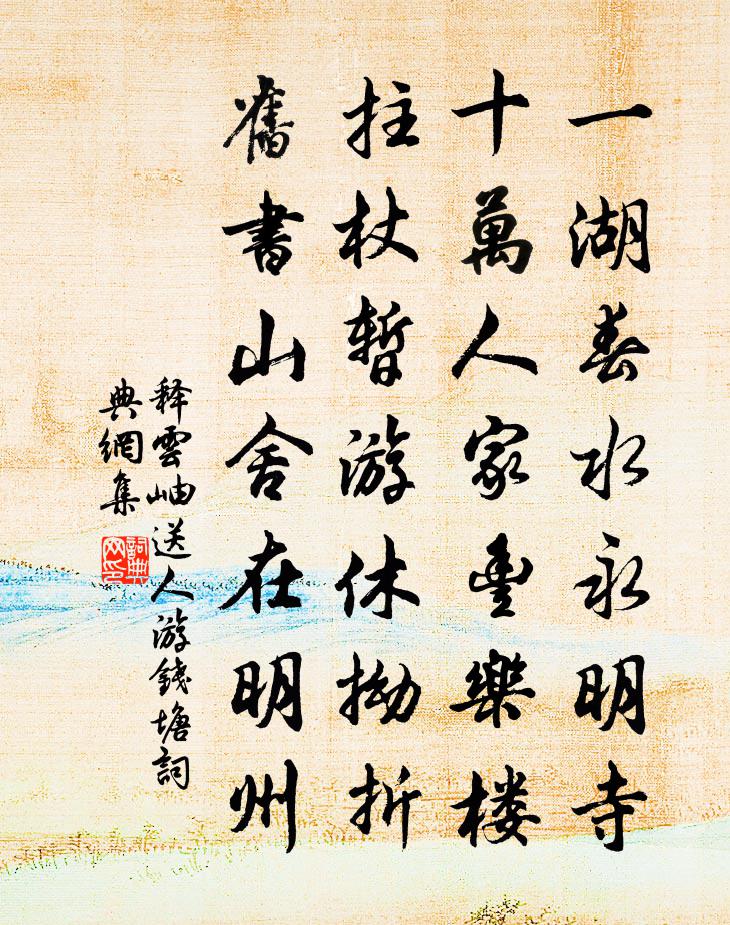 一湖春水永明寺
十萬人家豊樂楼
拄杖暫游休拗折
舊書山舍在明州
释雲岫送人游錢塘詞
典網集
詞典
网印